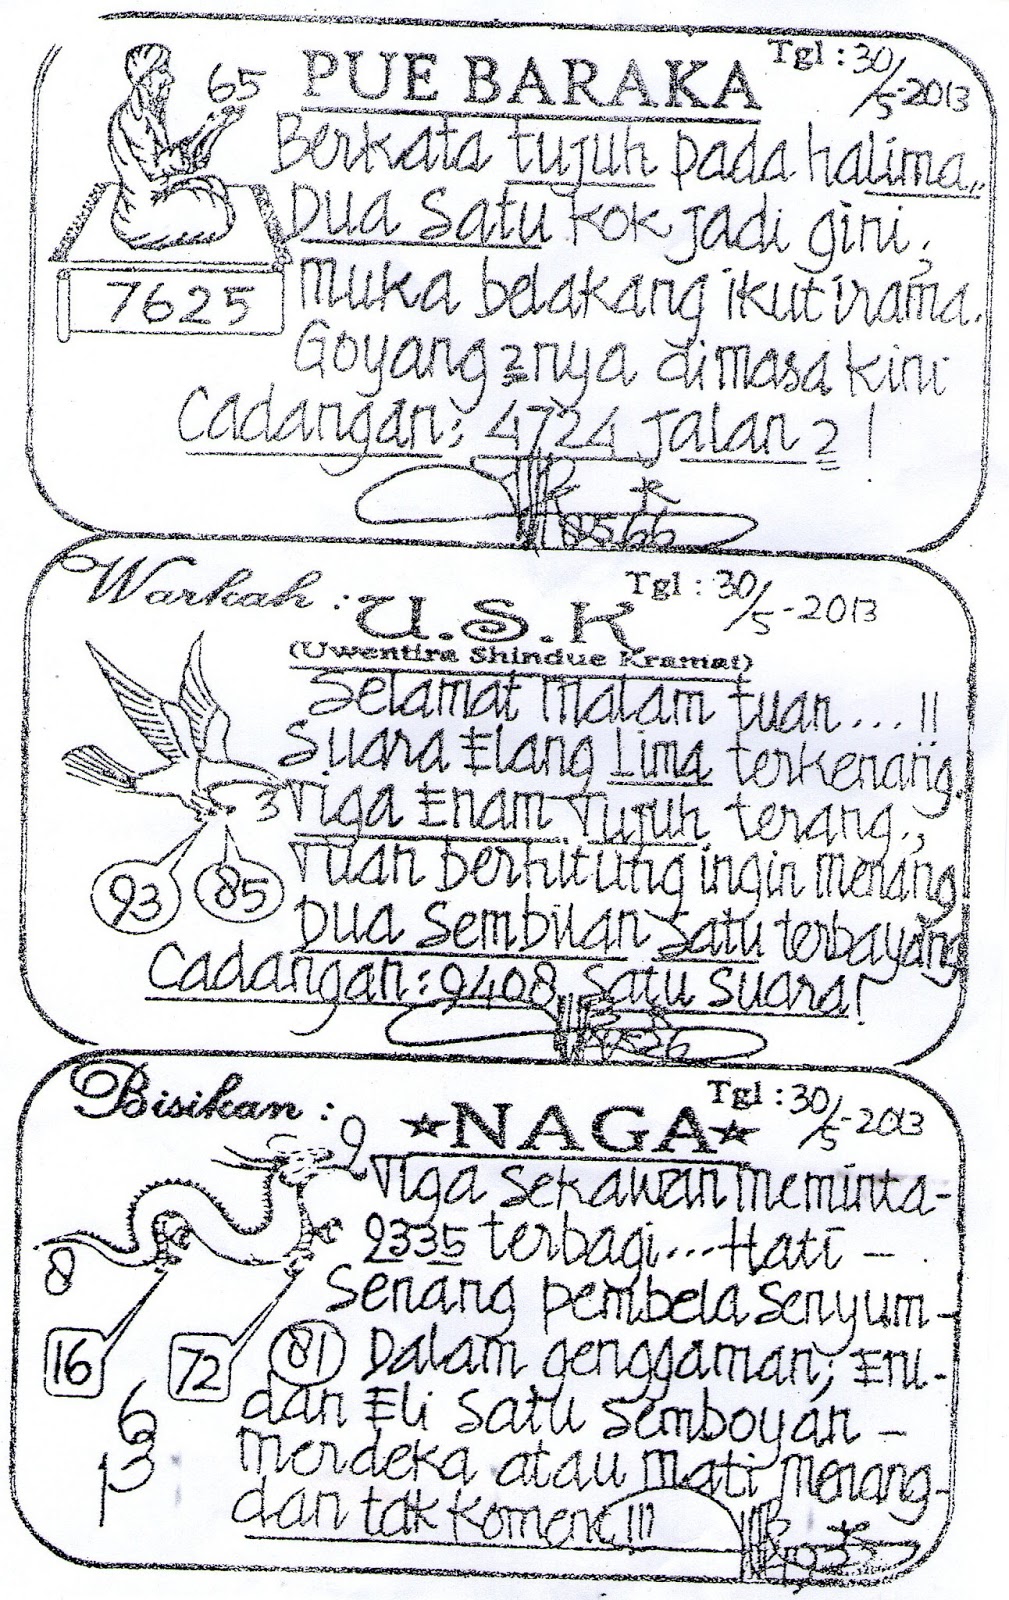 PUE BARAKA
Tgl : 30/5-2013
65
Berkata tujuh pada halima,,
Dua Satu kok jadi gini,
7625
Muka belakang ikut irama.
Goyang2nya dimasa kini
Cadangan; 4724 Jalan 2 !
8566
Warkah : U.S.K
Tgl : 30/5-2013
(Uwentira Shindue Kramat)
Selamat Malam tuan...!!
Suara Elang Lima terkenang.
3
Tiga Enam Tujuh terang.,
Tuan berhitung ingin Menang
93 85
Dua Sembilan Satu terbayang
Cadangan: 9408 Satu Suara!
Bisikan : NAGA
Tgl : 30/5-2013
2
Tiga Sekawan Meminta-
2335 terbagi...Hati -
8
Senang pembela Senyum -
16 72 81 Dalam genggaman; Eni-
dan Eli Satu Semboyan -
6
13
Merdeka atau Mati Menang-
dan tak Komen!!!